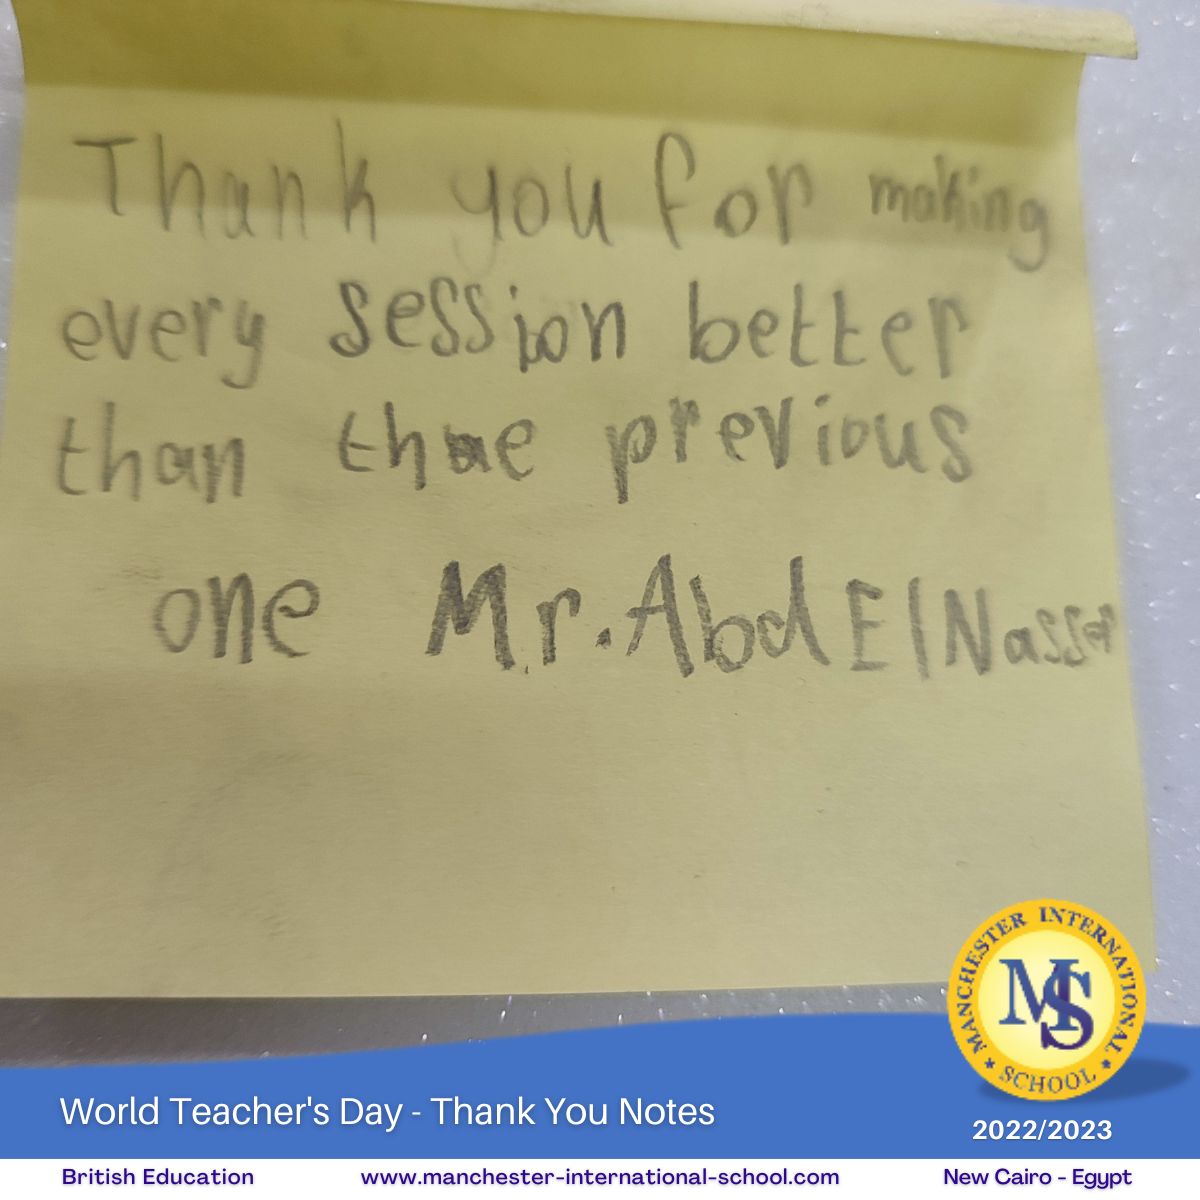 Thank you for making
every session better
than the previous
one Mr. Abd El Nasser
MANCHESTER INTERNATIONAL SCHOOL
MS
World Teacher's Day - Thank You Notes
2022/2023
British Education
www.manchester-international-school.com
New Cairo - Egypt